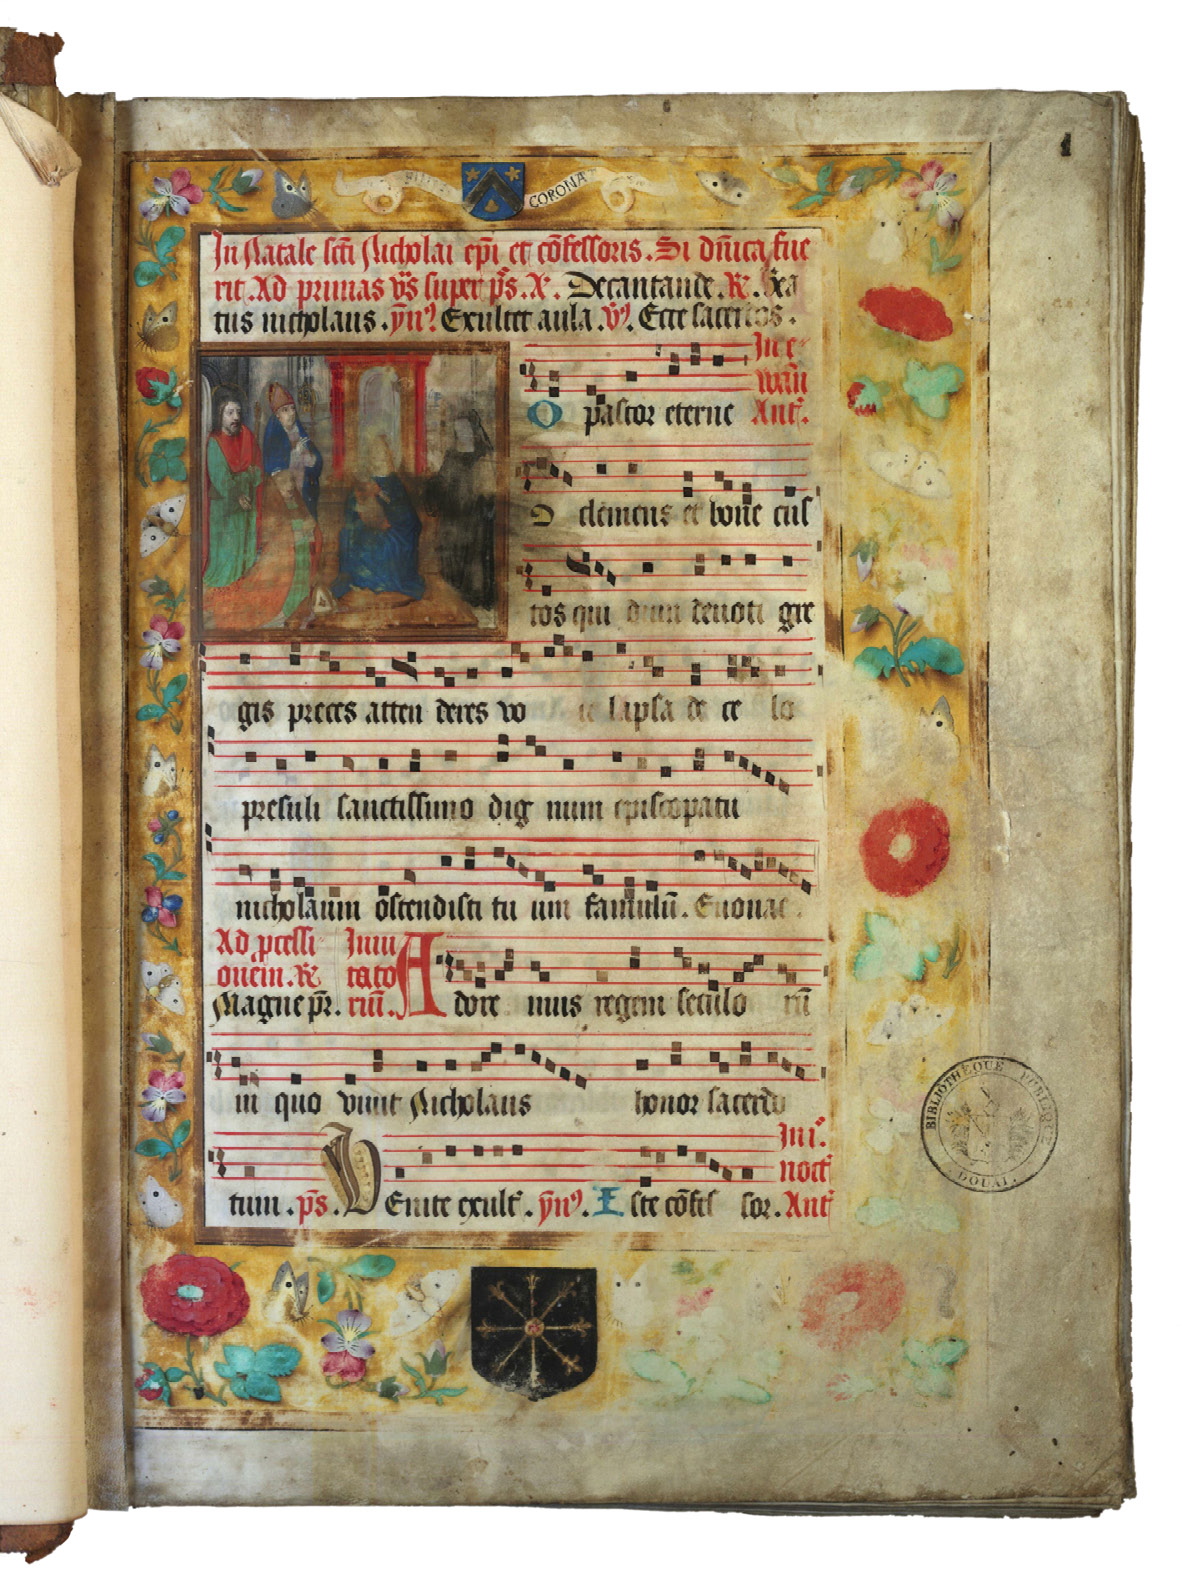 1
CORONA
In Natale scti Nicholai epi et cōfessoris. Si dn̄ica fue
rit. Ad primas vs̄ super ps̄. A. Decantande. R. Bea
tus nicholaus. yn̄. Exultet aula. v. Ecce sacerdos.
In e-
wan̄
O pastor eterne Ant̄.
O clemens et bone cus
tos qui dum deuoti gre
gis preces atten deres vo ce lapsa de ce lo
presuli sanctissimo dig num episcopatu
nicholaum ostendisti tu um famulū. Euouae.
Ad p̄cessi
onem. R
Magne pr̄.
Inui
tato
riū.
A dore mus regem seculo rū
in quo viuit Nicholaus honor sacerdo
In i°.
noct̄
tum. ps̄. VEnite exult̄. yn̄. Iste cōfes sor. Ant̄
BIBLIOTHÈQUE PUBLIQUE
DOUAI.